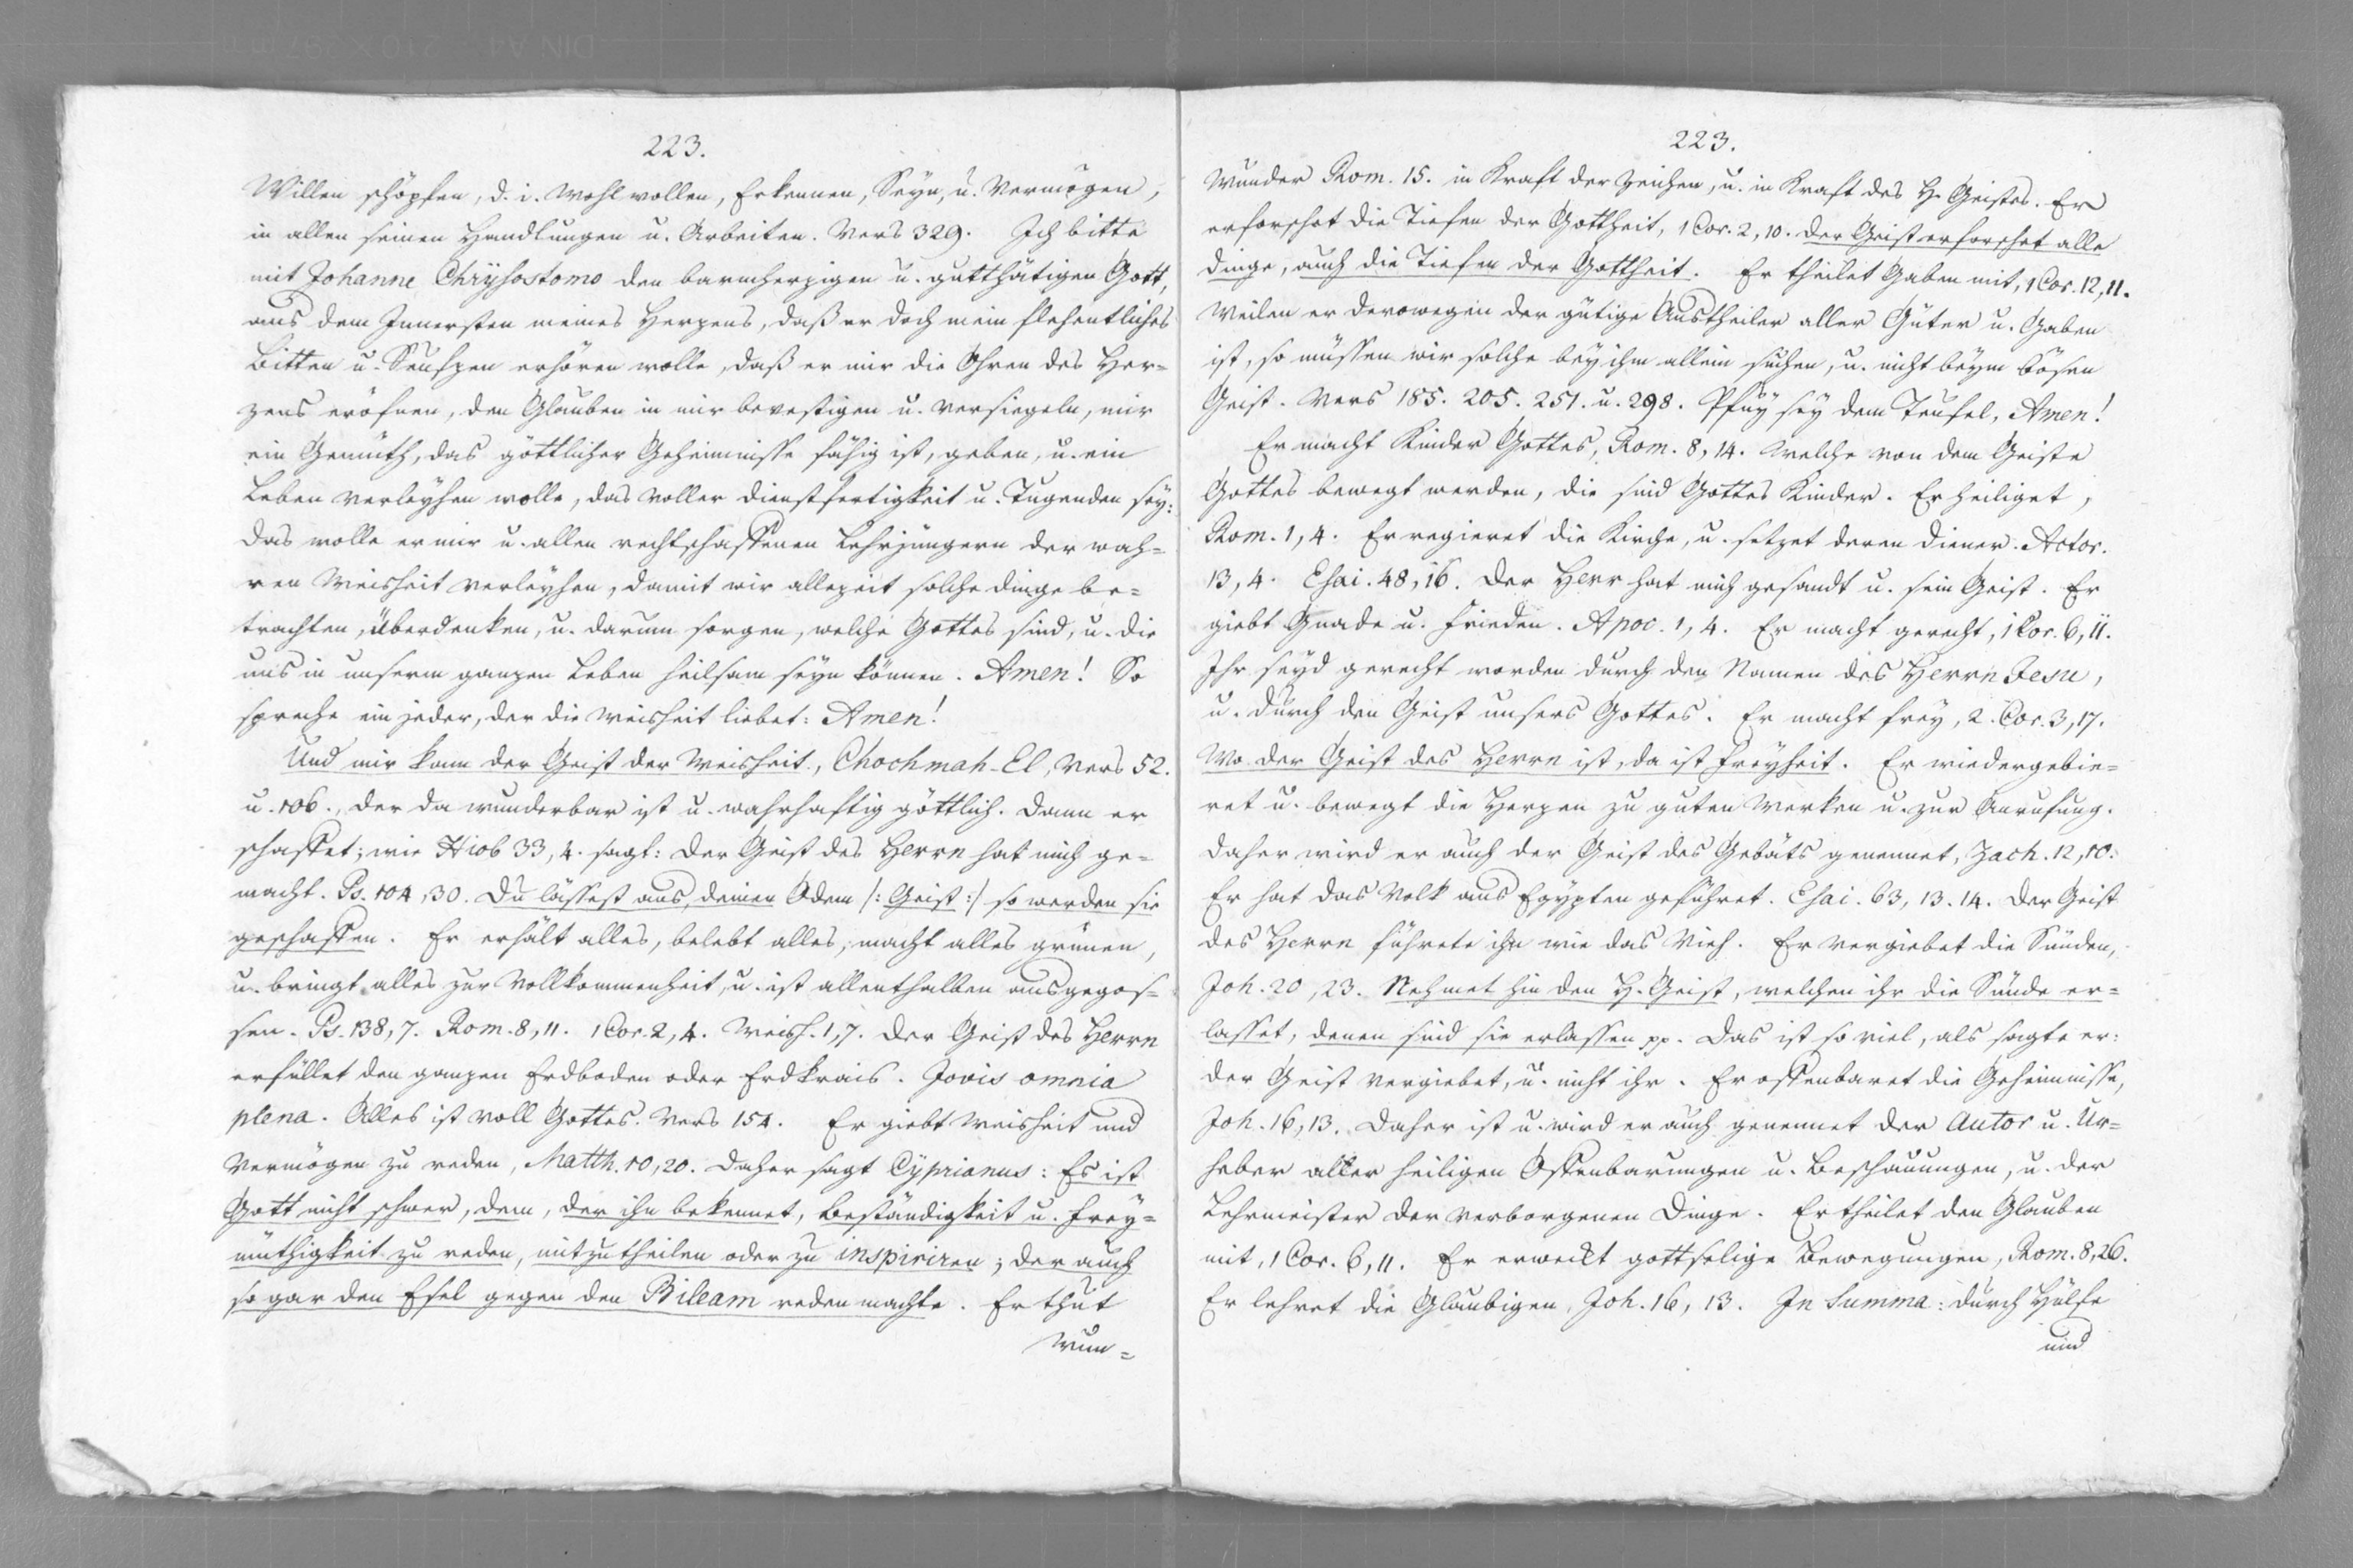 223.
Willen schöpfen, d. i. Wohlwollen, Erkennen, Seyn, u. Vermögen,
in allen seinen Handlungen u. Arbeiten. Vers 329. Ich bitte
mit Johanne Chrÿsostomo den barmherzigen u. gutthätigen Gott,
aus dem Innersten meines Herzens, daß er doch mein flehentliches
Bitten u. Seufzen erhören wolle, daß er mir die Ohren des Her=
zens eröfnen, den Glauben in mir bevestigen u. versiegeln, mir
ein Gemüth, das göttlicher Geheimnisse fähig ist, geben, u. ein
Leben verleyhen wolle, das voller Dienstfertigkeit u. Tugenden seÿ:
Das wolle er mir u. allen rechtschaffenen Lehrjüngern der wah=
ren Weisheit verleyhen, damit wir allezeit solche Dinge be=
trachten, überdenken, u. darum sorgen, welche Gottes sind, u. die
uns in unserm ganzen Leben heilsam seyn können. Amen! So
spreche ein jeder, der die Weisheit liebet: Amen!
Und mir kam der Geist der Weisheit, Chochmah-El, Vers 52.
u. 106., der da wunderbar ist u. wahrhaftig göttlich. Dann er
schaffet; wie Hiob 33, 4. sagt: Der Geist des Herrn hat mich ge=
macht. Ps. 104, 30. Du lässest aus deinen Odem /: Geist :/ so werden sie
geschaffen. Er erhält alles, belebt alles, macht alles grünen,
u. bringt alles zur Vollkommenheit, u. ist allenthalben ausgegos=
sen. Ps. 138, 7. Rom. 8, 11. 1 Cor. 2, 4. Weish. 1, 7. Der Geist des Herrn
erfüllet den ganzen Erdboden oder Erdkrais. Jovis omnia
plena. Alles ist voll Gottes. Vers 154. Er giebt Weisheit und
Vermögen zu reden, Matth. 10, 20. Daher sagt Cyprianus: Es ist
Gott nicht schwer, dem, der ihn bekennet, Beständigkeit u. Frey=
müthigkeit zu reden, mitzutheilen oder zu inspiriren; der auch
so gar den Esel gegen den Bileam reden machte. Er thut
Wun=
223.
Wunder Rom. 15. in Kraft der Zeichen, u. in Kraft des H. Geistes. Er
erforschet die Tiefen der Gottheit, 1 Cor. 2, 10. der Geist erforschet alle
Dinge, auch die Tiefen der Gottheit. Er theilet Gaben mit, 1 Cor. 12, 11.
Weilen er derowegen der gütige Austheiler aller Güter u. Gaben
ist, so müssen wir solche beÿ ihm allein suchen, u. nicht beÿm bösen
Geist. Vers 185. 205. 251. u. 298. Pfuÿ seÿ dem Teufel, Amen!
Er macht Kinder Gottes, Rom. 8, 14. Welche von dem Geiste
Gottes bewegt werden, die sind Gottes Kinder. Er heiliget,
Rom. 1, 4. Er regieret die Kirche, u. setzet deren Diener. Actor.
13, 4. Esai. 48, 16. Der Herr hat mich gesandt u. sein Geist. Er
giebt Gnade u. Frieden. Apoc. 1, 4. Er macht gerecht, 1 Cor. 6, 11.
Ihr seyd gerecht worden durch den Namen des Herrn Jesu,
u. durch den Geist unsers Gottes. Er macht freÿ, 2. Cor. 3, 17.
Wo der Geist des Herrn ist, da ist Freyheit. Er wiedergebie=
ret u. bewegt die Herzen zu guten Werken u. zur Anrufung.
Daher wird er auch der Geist des Gebäts genennet, Zach. 12, 10.
Er hat das Volk aus Egypten geführet. Esai. 63, 13. 14. Der Geist
des Herrn führete ihn wie das Vieh. Er vergiebet die Sünden,
Joh. 20, 23. Nehmet hin den H. Geist, welchen ihr die Sünde er=
lasset, denen sind sie erlassen pp. Das ist so viel, als sagte er:
der Geist vergiebet, u. nicht ihr. Er offenbaret die Geheimnisse,
Joh. 16, 13. Daher ist u. wird er auch genennet der Autor u. Ur=
heber aller heiligen Offenbarungen u. Beschauungen, u. der
Lehrmeister der verborgenen Dinge. Er theilet den Glauben
mit, 1 Cor. 6, 11. Er erweckt gottselige Bewegungen, Rom. 8, 26.
Er lehret die Glaubigen, Joh. 16, 13. In Summa: durch Hülfe
und